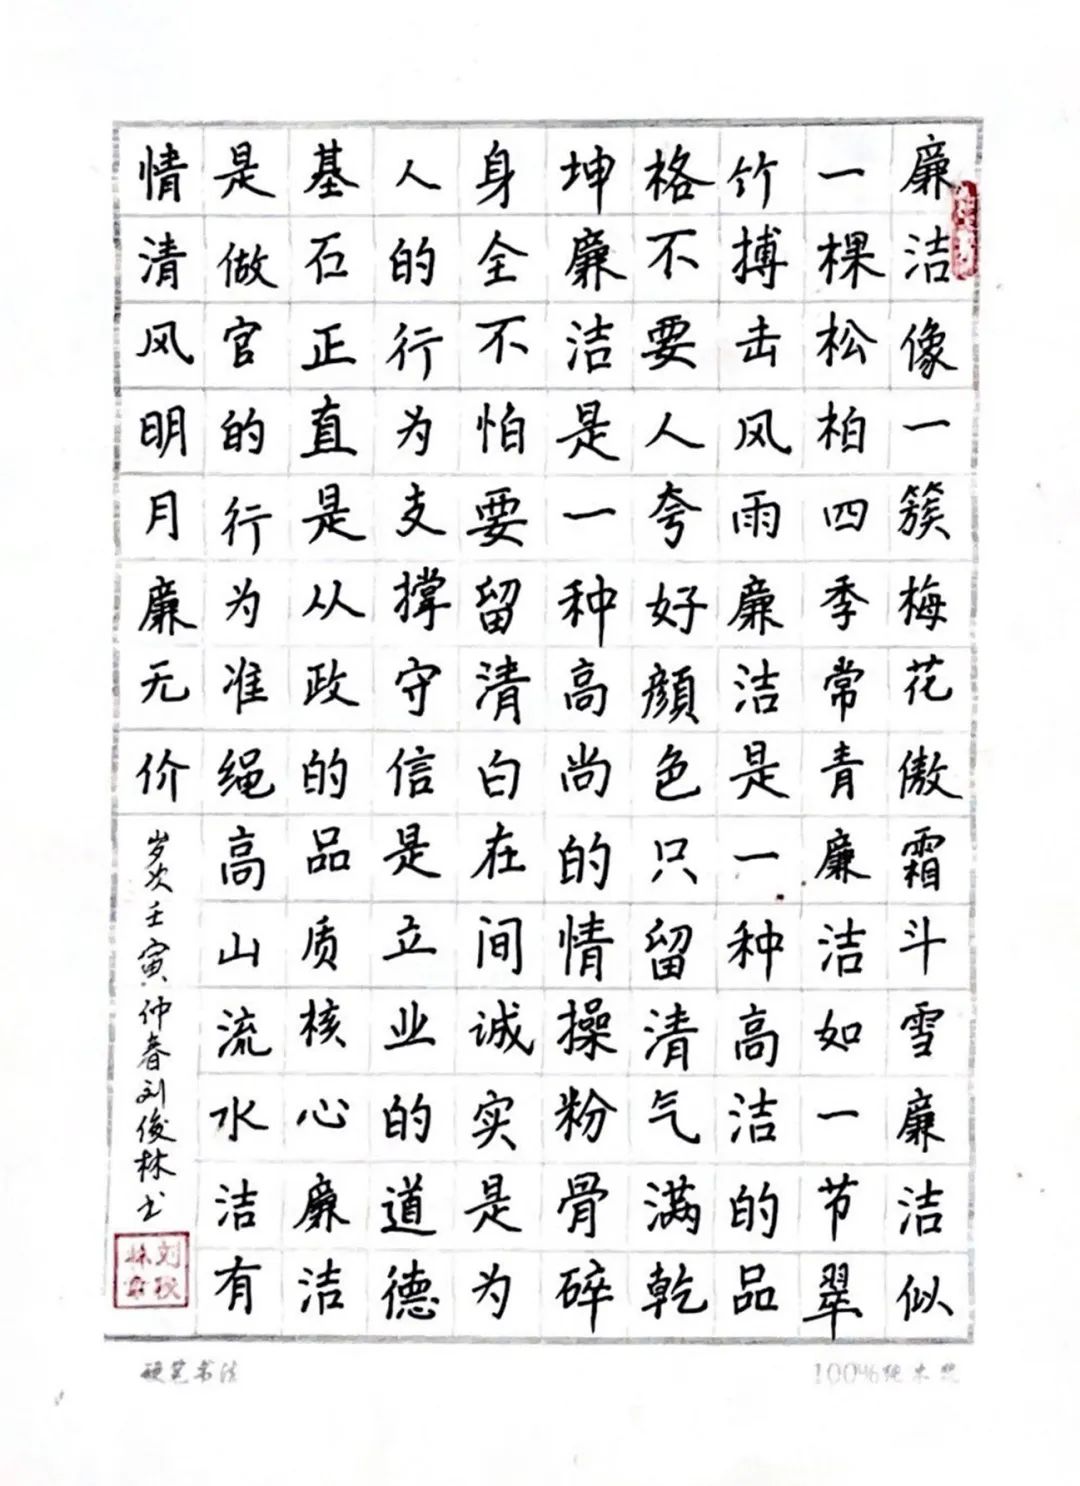 廉洁像一簇梅花傲霜斗雪廉洁似
一棵松柏四季常青廉洁如一节翠
竹搏击风雨廉洁是一种高洁的品
格不要人夸好颜色只留清气满乾
坤廉洁是一种高尚的情操粉骨碎
身全不怕要留清白在间诚实是为
人的行为支撑守信是立业的道德
基石正直是从政的品质核心廉洁
是做官的行为准绳高山流水洁有
情清风明月廉无价
岁次壬寅仲春刘俊林书
硬笔书法
100%纯木浆